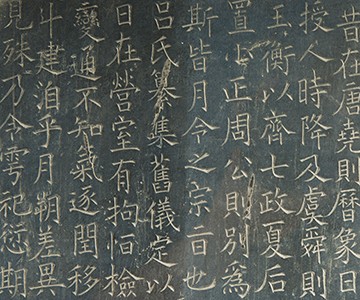 昔在唐堯則曆象日
授人時降及虞舜則
玉衡以齊七政夏后
置小正周公則別為
斯皆月令之宗旨也
呂氏纂集舊儀定以
日在營室有拘恒檢
變通不知氣逐閏移
斗建洎乎月朔差異
見殊乃令雩祀愆期